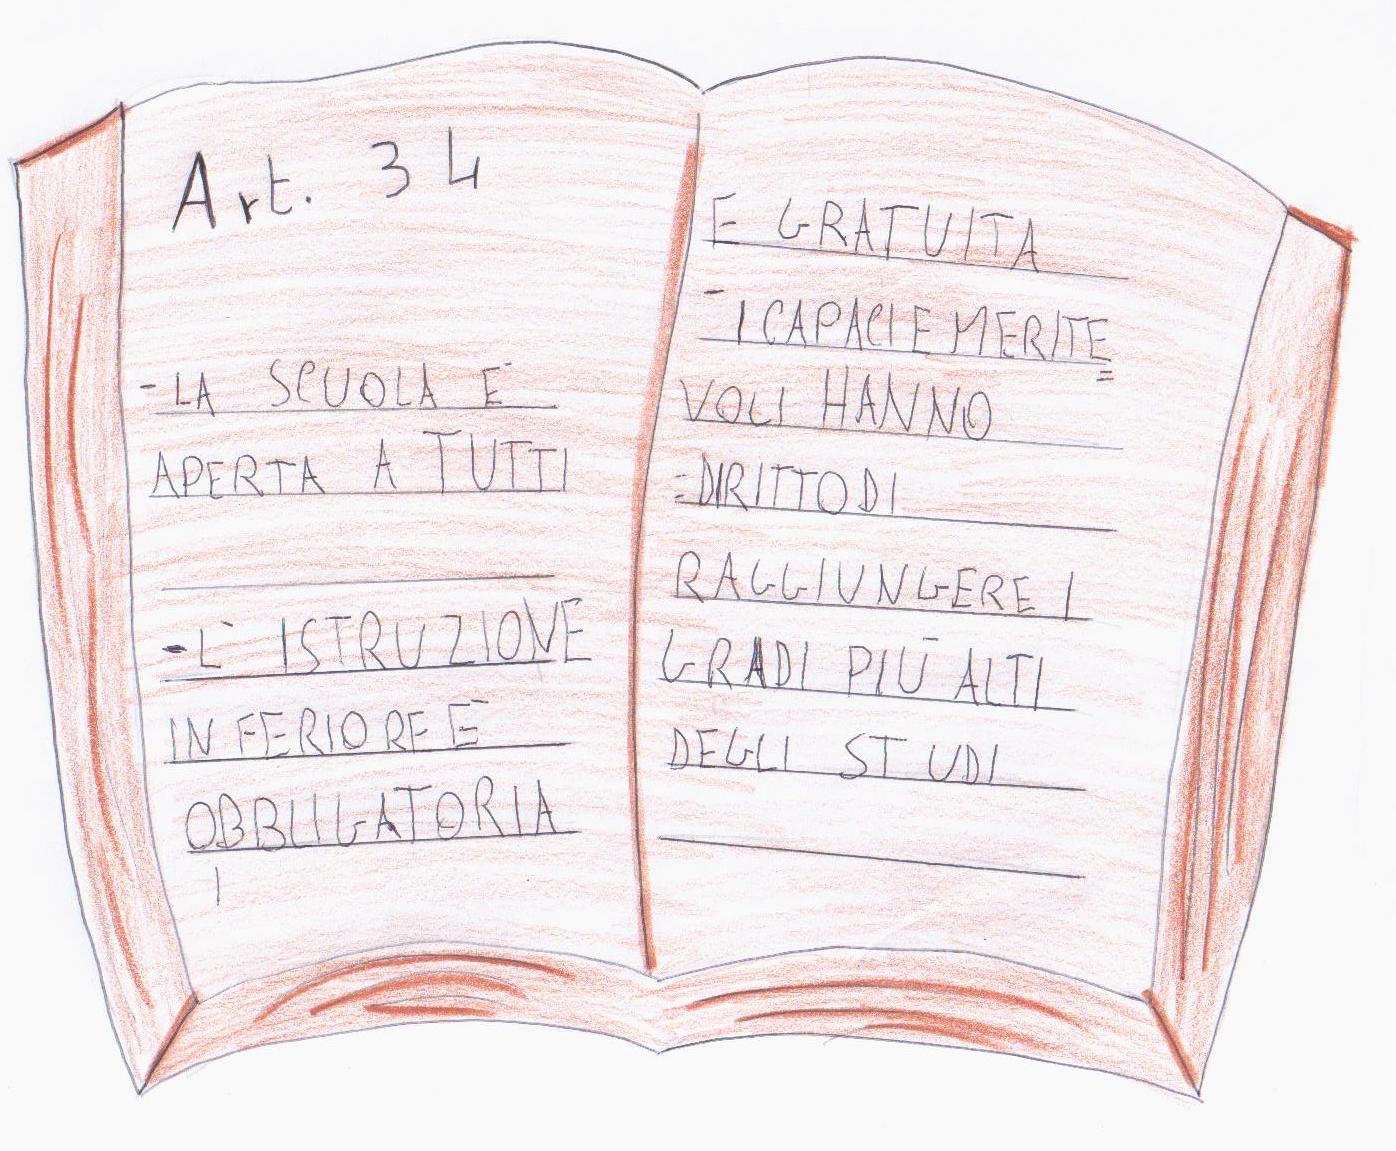 Art. 34
-LA SCUOLA È
APERTA A TUTTI
-L'ISTRUZIONE
INFERIORE È
OBBLIGATORIA
E GRATUITA
-I CAPACI E MERITE
=
VOLI HANNO
=DIRITTO DI
RAGGIUNGERE I
GRADI PIÙ ALTI
DEGLI STUDI